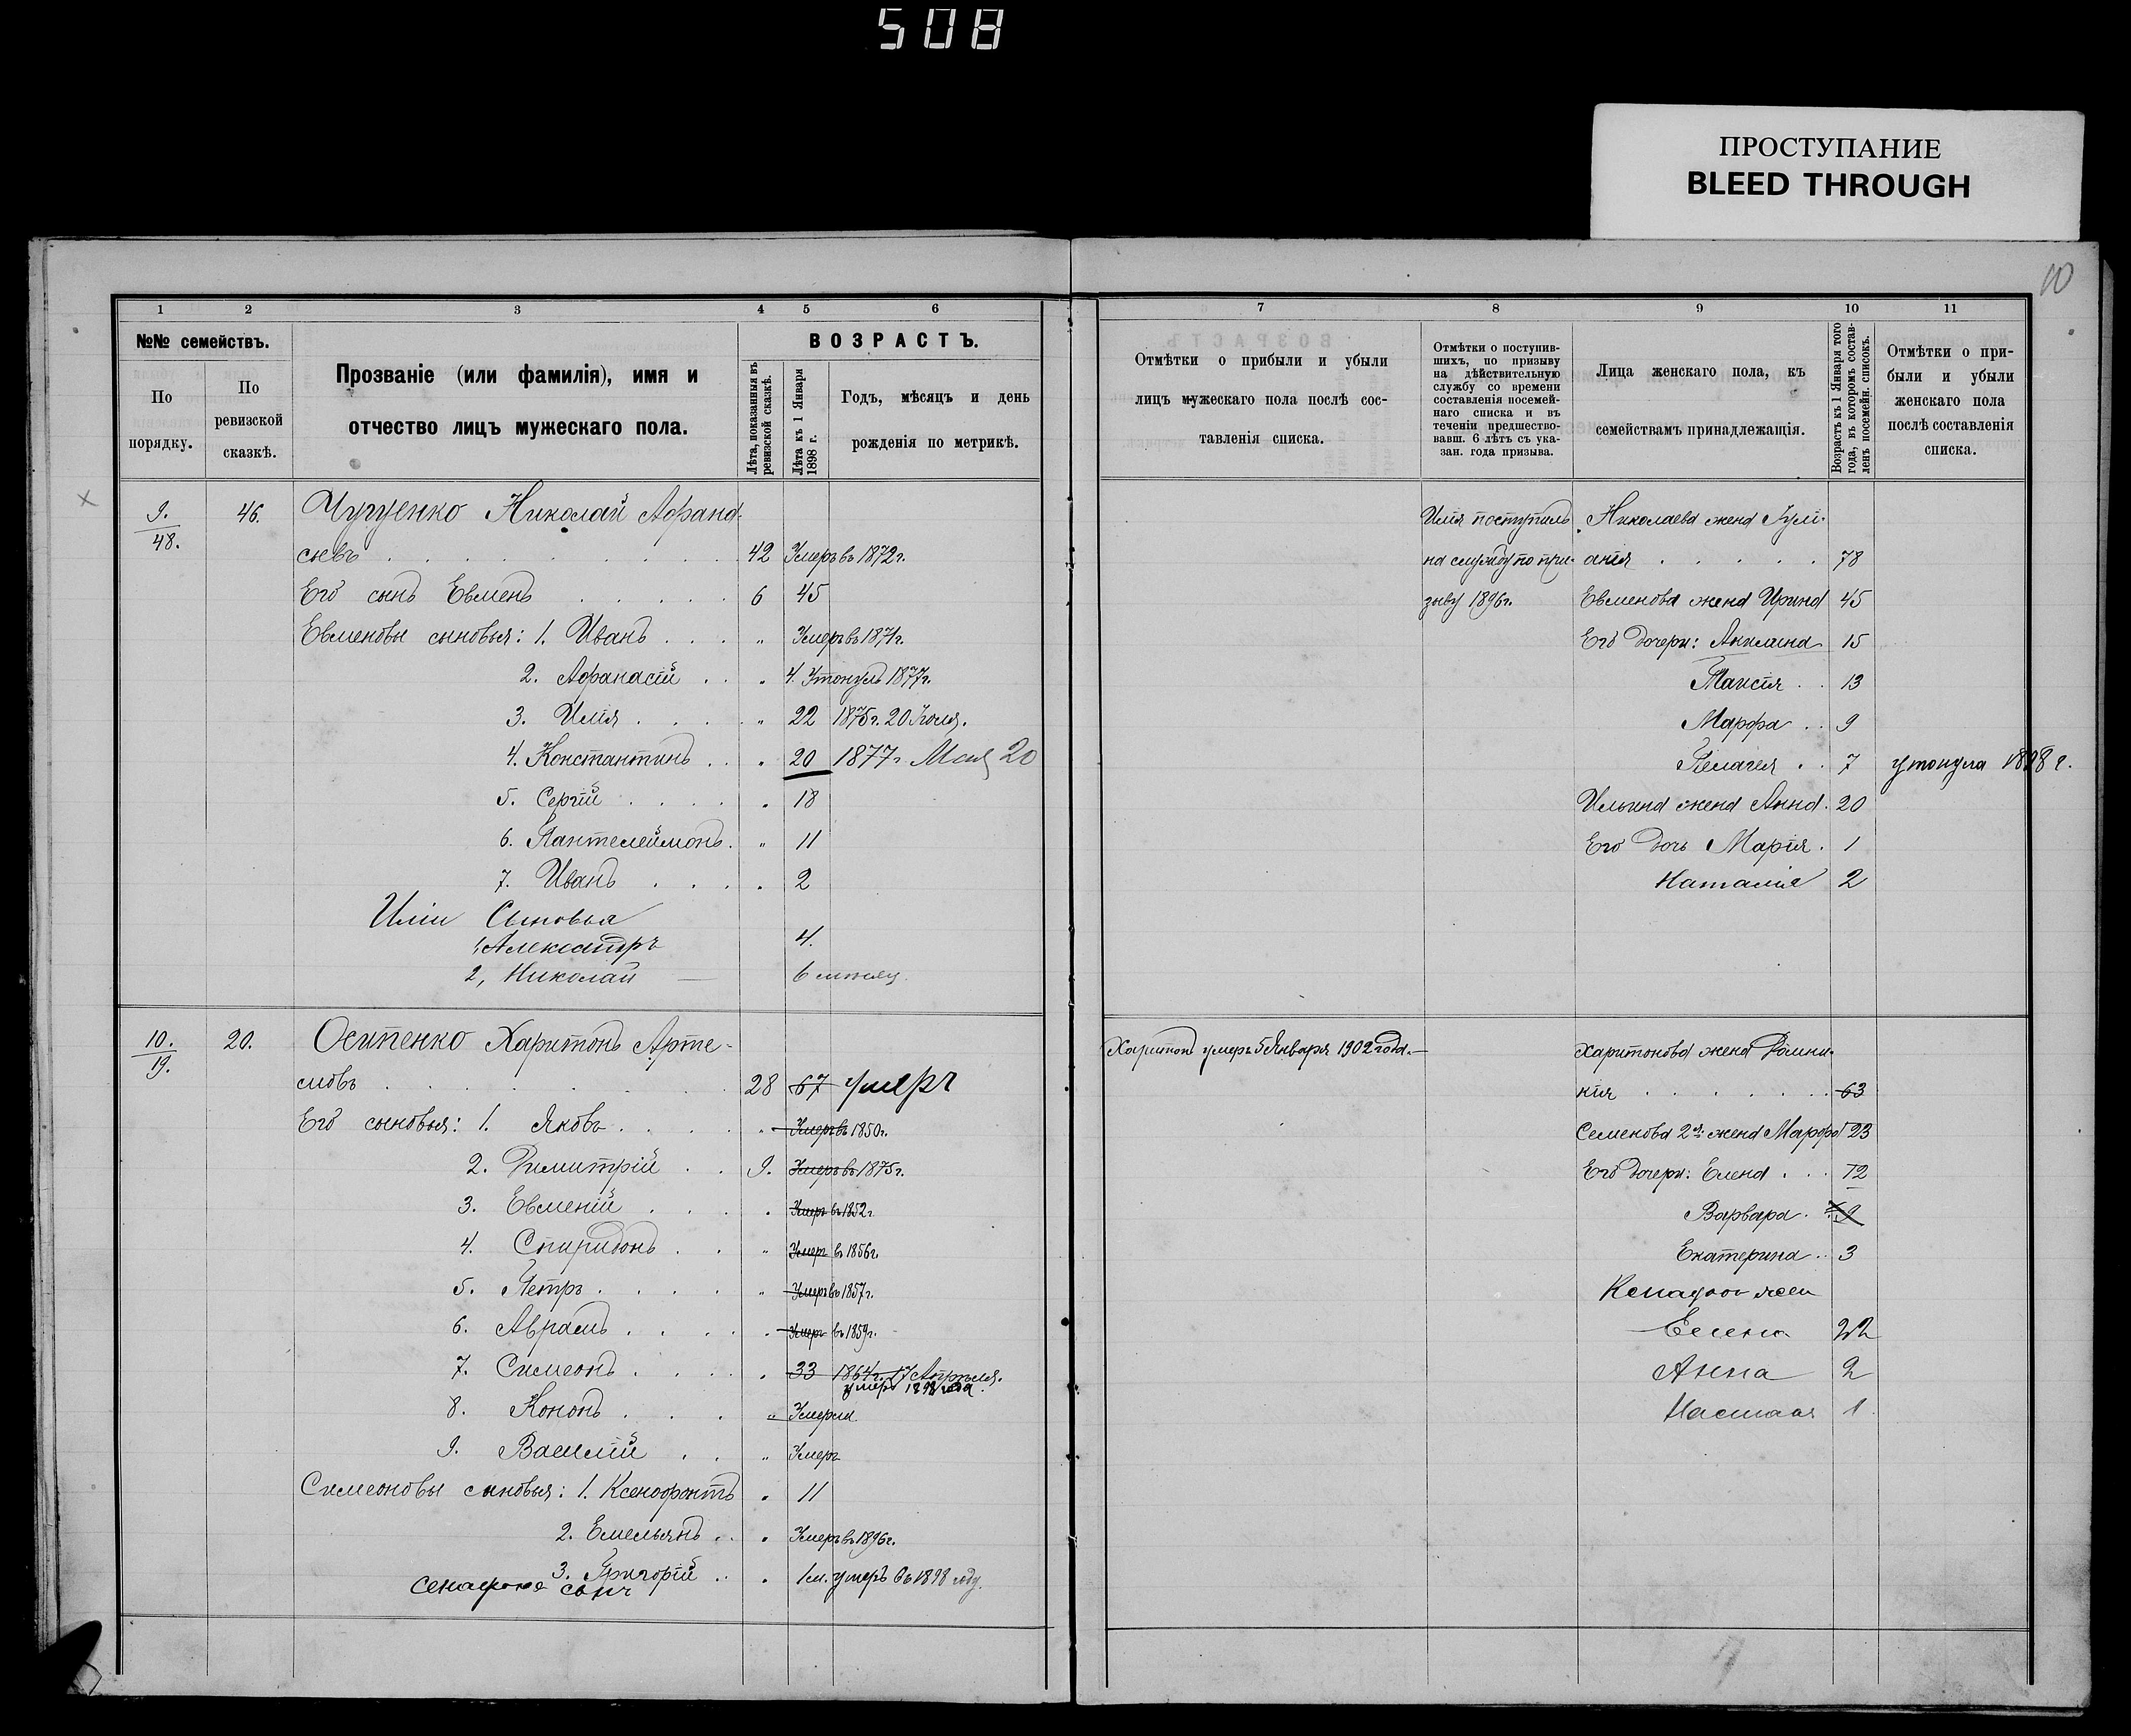 508
ПРОСТУПАНИЕ
BLEED THROUGH
10
1 2 3 4 5 6
№№ семействъ.
По порядку.
По ревизской сказкѣ.
Прозваніе (или фамилія), имя и
отчество лицъ мужескаго пола.
ВОЗРАСТЪ.
Лѣта, показанныя въ ревизской сказкѣ.
Лѣта къ 1 Января 1898 г.
Годъ, мѣсяцъ и день
рожденія по метрикѣ.
9. 46. Чугуенко Николай Афана-
48.
сьевъ 42 Умеръ въ 1872 г.
Его сынъ Евменъ 6 45
Евменовы сыновья: 1. Иванъ " Умеръ въ 1871 г.
2. Афанасій " 4. Утонулъ 1877 г.
3. Илія " 22 1875 г. 20 Іюля.
4. Константинъ " 20 1877 г. Мая 20
5. Сергій " 18
6. Пантелеймонъ " 11
7. Иванъ " 2
Иліи Сыновья
1, Александръ 4.
2, Николай — 6
10. 20. Осипенко Харитонъ Арте-
19.
мовъ 28 67 умеръ
Его сыновья: 1. Яковъ " Умеръ въ 1850 г.
2. Димитрій 9. Умеръ въ 1875 г.
3. Евменій " Умеръ въ 1852 г.
4. Спиридонъ " Умеръ въ 1856 г.
5. Петръ " Умеръ въ 1857 г.
6. Аврамъ " Умеръ въ 1859 г.
7. Симеонъ " 33 1864 г. 17 Апрѣля.
умеръ 1898 года.
8. Кононъ " Умеръ
9. Василій " Умеръ
Симеоновы сыновья: 1. Ксенофонтъ " 11
2. Емельянъ " Умеръ въ 1896 г.
3. Григорій " 1 м. умеръ въ 1898 году.
сынъ
7 8 9 10 11
Отмѣтки о прибыли и убыли
лицъ мужескаго пола послѣ сос-
тавленія списка.
Отмѣтки о поступив-
шихъ, по призыву
на дѣйствительную
службу со времени
составленія посемей-
наго списка и въ
теченіи предшество-
вавш. 6 лѣтъ съ ука-
зан. года призыва.
Лица женскаго пола, къ
семействамъ принадлежащія.
Возрастъ къ 1 Января того
года, въ которомъ состав-
ленъ посемейн. списокъ.
Отмѣтки о при-
были и убыли
женскаго пола
послѣ составленія
списка.
Илія поступилъ Николаева жена Іули-
на службу по при- анія 78
зыву 1896 г. Евменова жена Ирина 45
Его дочери: Акилина 15
Таисія 13
Марфа 9
Пелагея 7 утонула 1898 г.
Ильина жена Анна 20
Его дочь Марія 1
Наталія 2
Харитонъ умеръ 5 Января 1902 года. — Харитонова жена Домни-
кія 63
Семенова 2я жена Марфа 23
Его дочери: Елена 12
Варвара 9
Екатерина 3
Елена 22
Анна 2
1